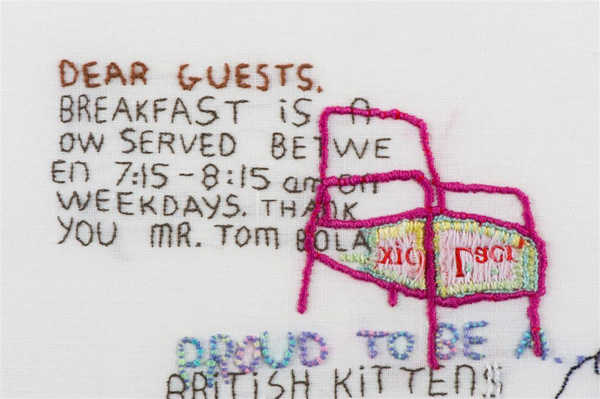 DEAR GUESTS.
BREAKFAST iS A
OW SERVED BETWE
EN 7:15-8:15 am on
WEEKDAYS. THANK
YOU MR. TOM BOLA
PROUD TO BE A..
BRiTiSH KiTTENS